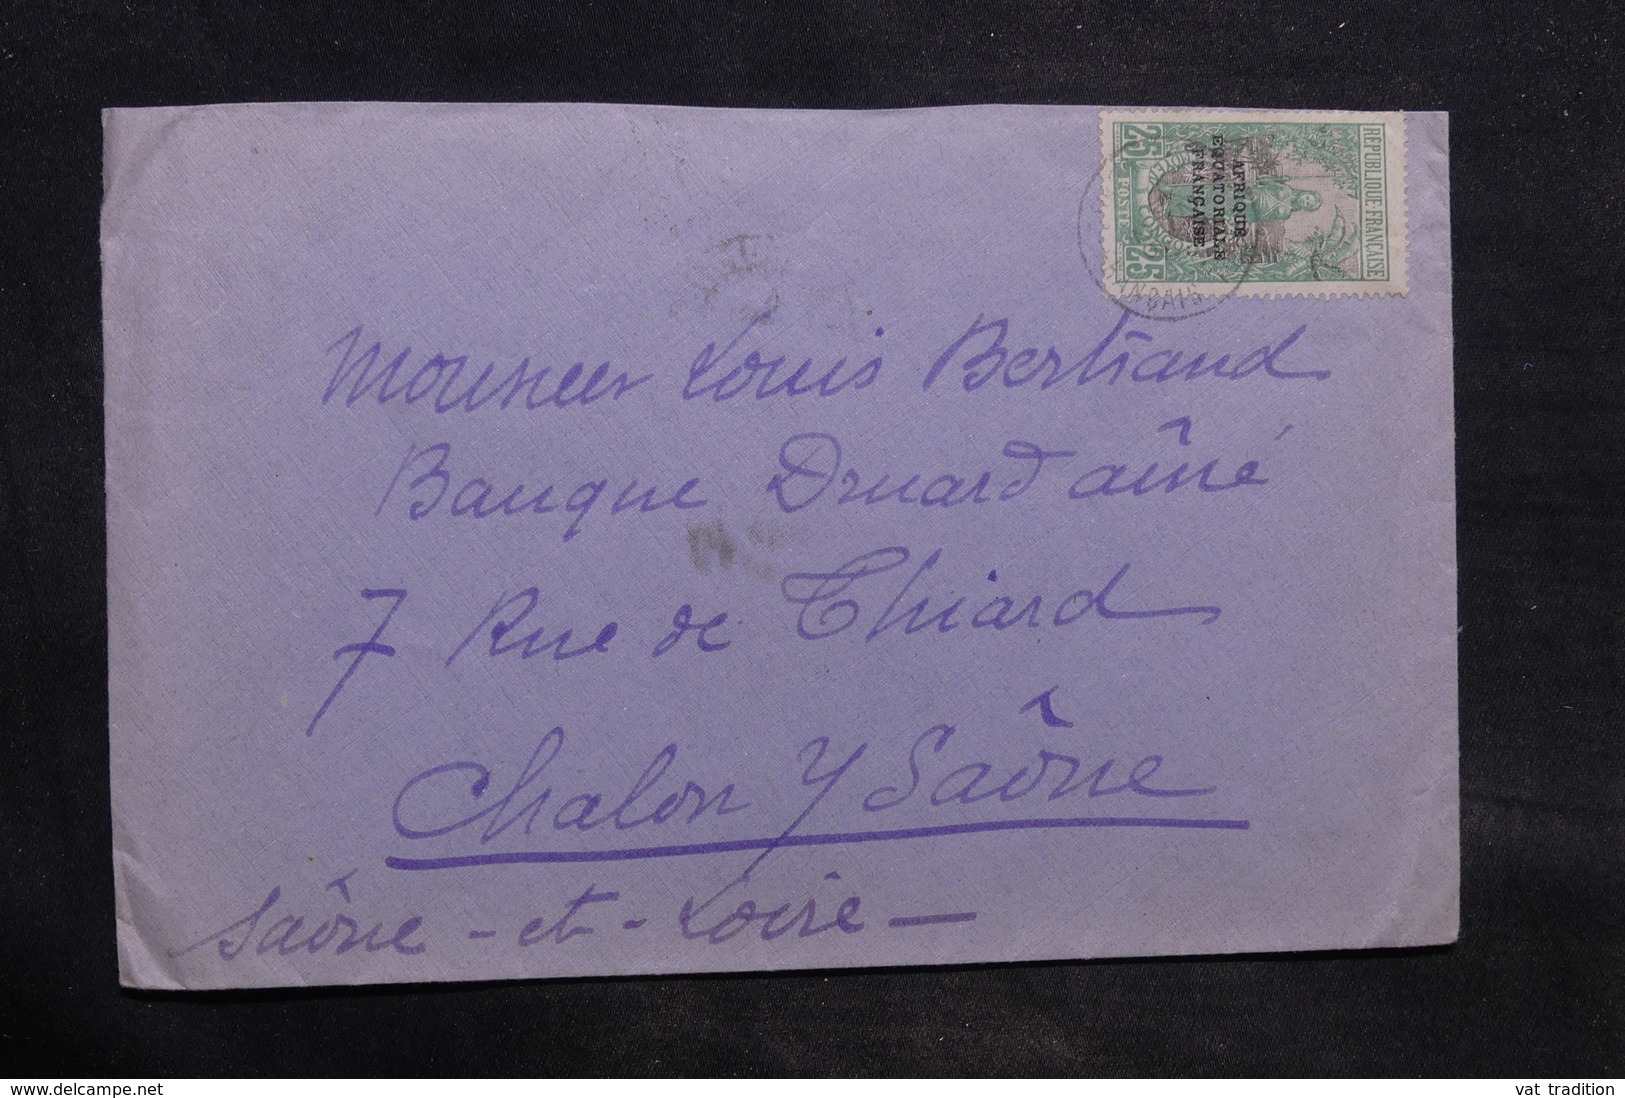 RÉPUBLIQUE FRANÇAISE
AFRIQUE
EQUATORIALE
FRANÇAISE
25 POSTE CONGO 25
Monsieur Louis Bertrand
Banque Druard aîné
7 Rue de Thiard
Chalon s/ Saône
Saône-et-Loire
www.delcampe.net
vat tradition